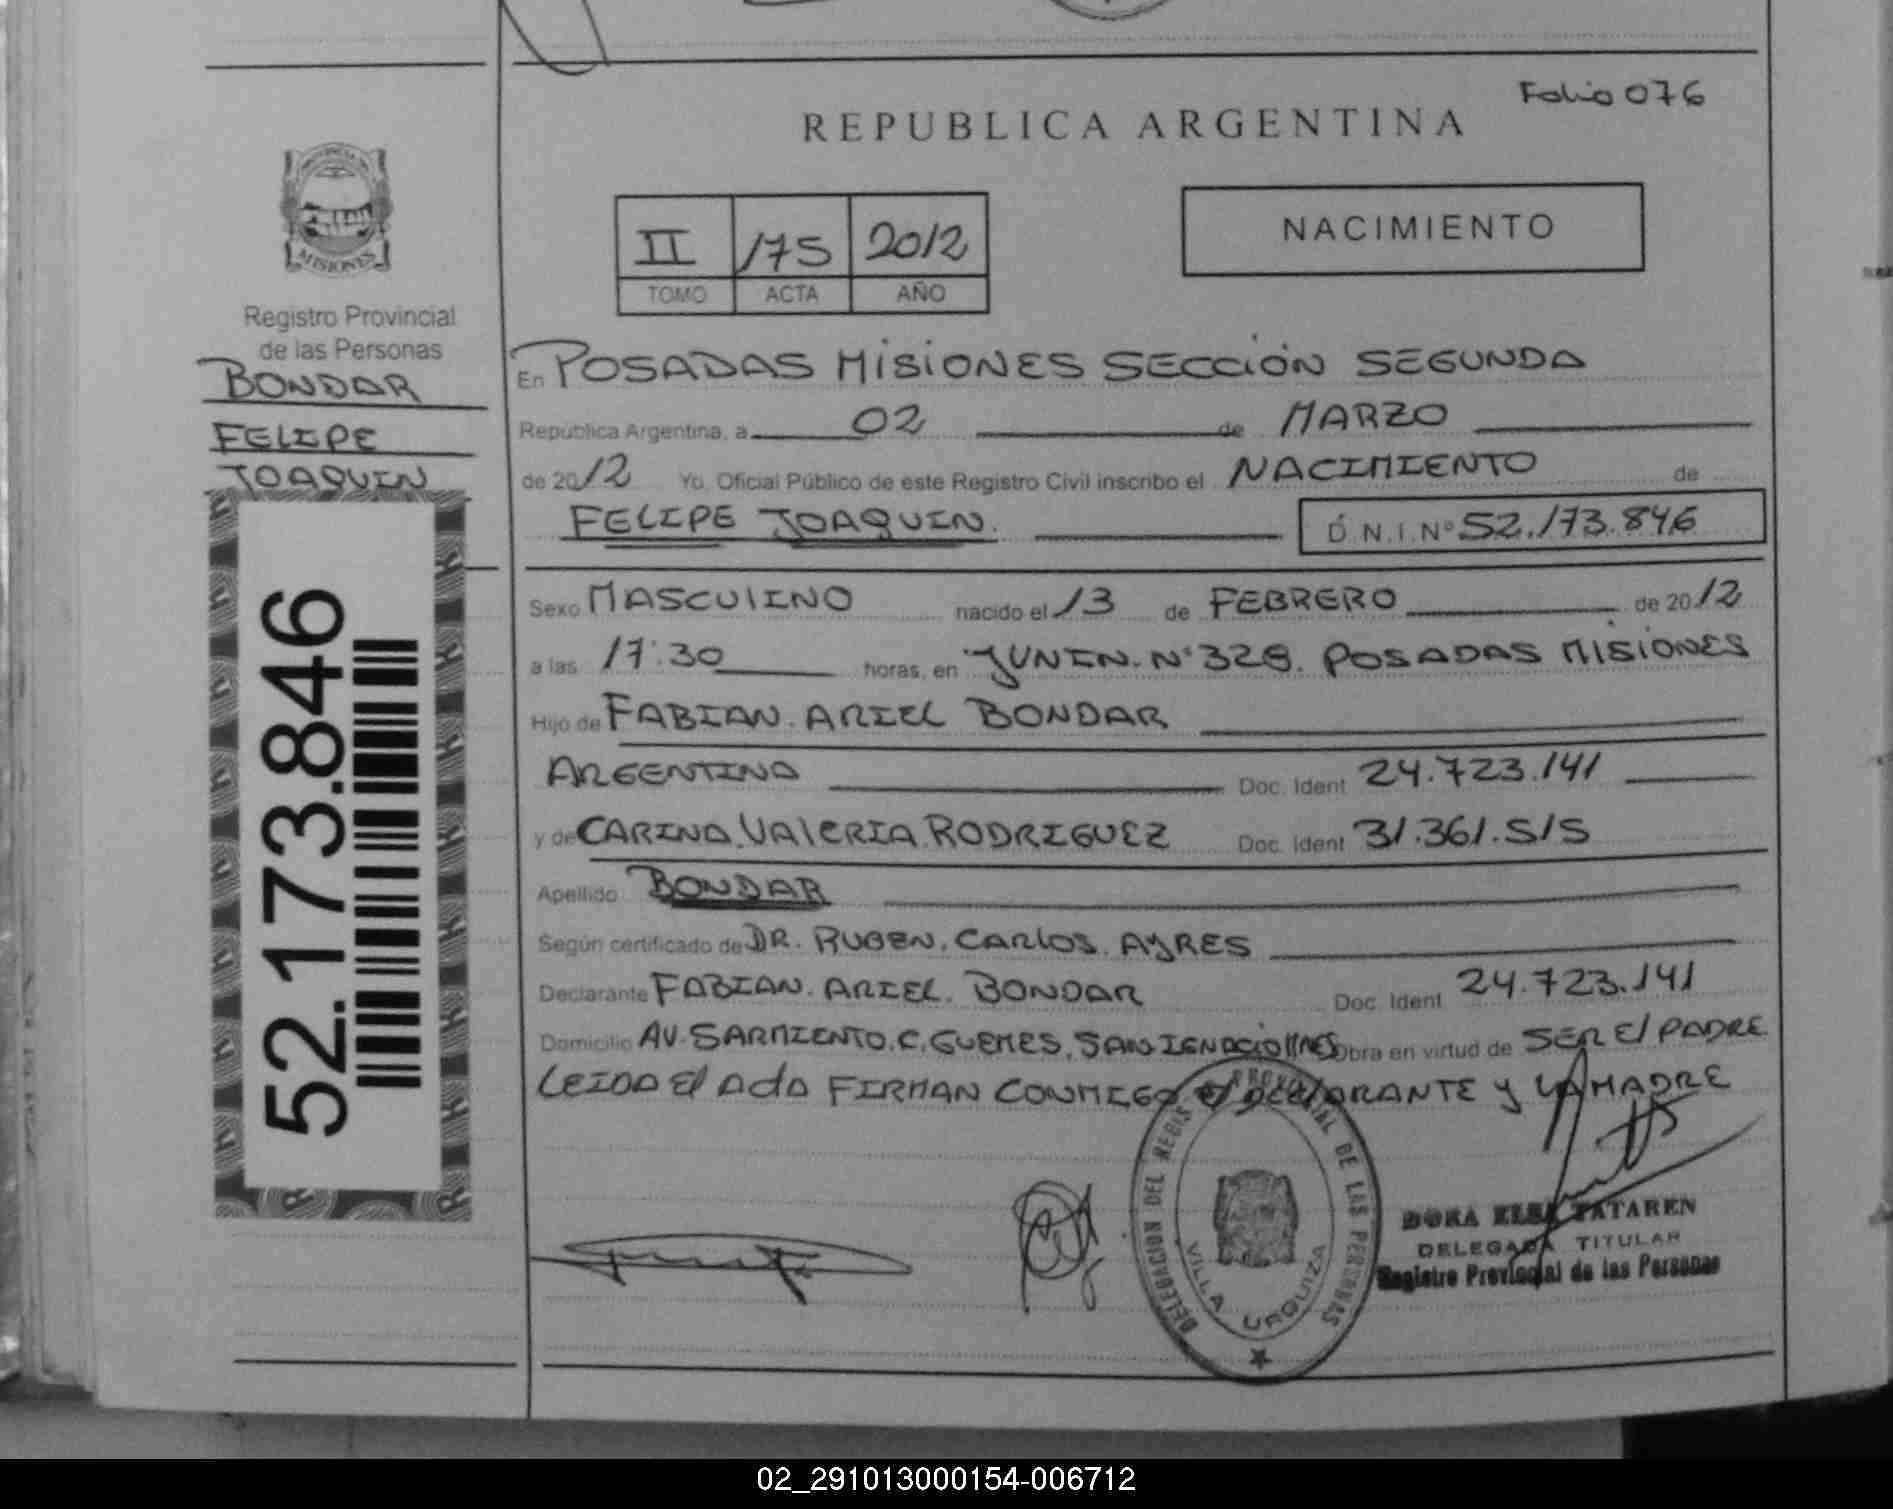 Folio 076
REPUBLICA ARGENTINA
PROVINCIA DE
MISIONES
II 175 2012
TOMO ACTA AÑO
NACIMIENTO
Registro Provincial
de las Personas
BONDAR
FELIPE
JOAQUIN
52.173.846
En POSADAS MISIONES SECCIÓN SEGUNDA
República Argentina, a 02 de MARZO
de 2012 Yo, Oficial Público de este Registro Civil inscribo el NACIMIENTO de
FELIPE JOAQUIN. D.N.I.Nº 52.173.846
Sexo MASCULINO nacido el 13 de FEBRERO de 2012
a las 17:30 horas, en JUNIN. Nº 328. POSADAS MISIONES
Hijo de FABIAN. ARIEL BONDAR
ARGENTINA Doc. Ident 24.723.141
y de CARINA. VALERIA. RODRIGUEZ Doc. Ident 31.361.515
Apellido BONDAR
Según certificado de DR. RUBEN. CARLOS. AYRES
Declarante FABIAN. ARIEL. BONDAR Doc. Ident 24.723.141
Domicilio AV. SARMIENTO. C. GUEMES. SAN IGNACIO MNES Obra en virtud de SER El PADRE
LEIDA El ActA FIRMAN CONMIGO El DEClARANTE y LA MADRE
DELEGACION DEL REGIS PROVINCIAL DE LAS PERSONAS
VILLA URQUIZA
DORA ELBA TATAREN
DELEGADA TITULAR
Registro Provincial de las Personas
02_291013000154-006712